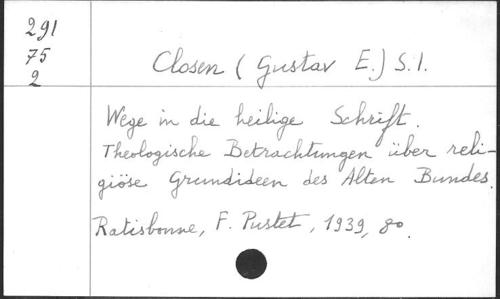 291
75
2
Closen (Gustav E.) S.I.
Wege in die heilige Schrift.
Theologische Betrachtungen über reli-
giöse Grundideen des Alten Bundes.
Ratisbonne, F. Pustet, 1939, 8o.